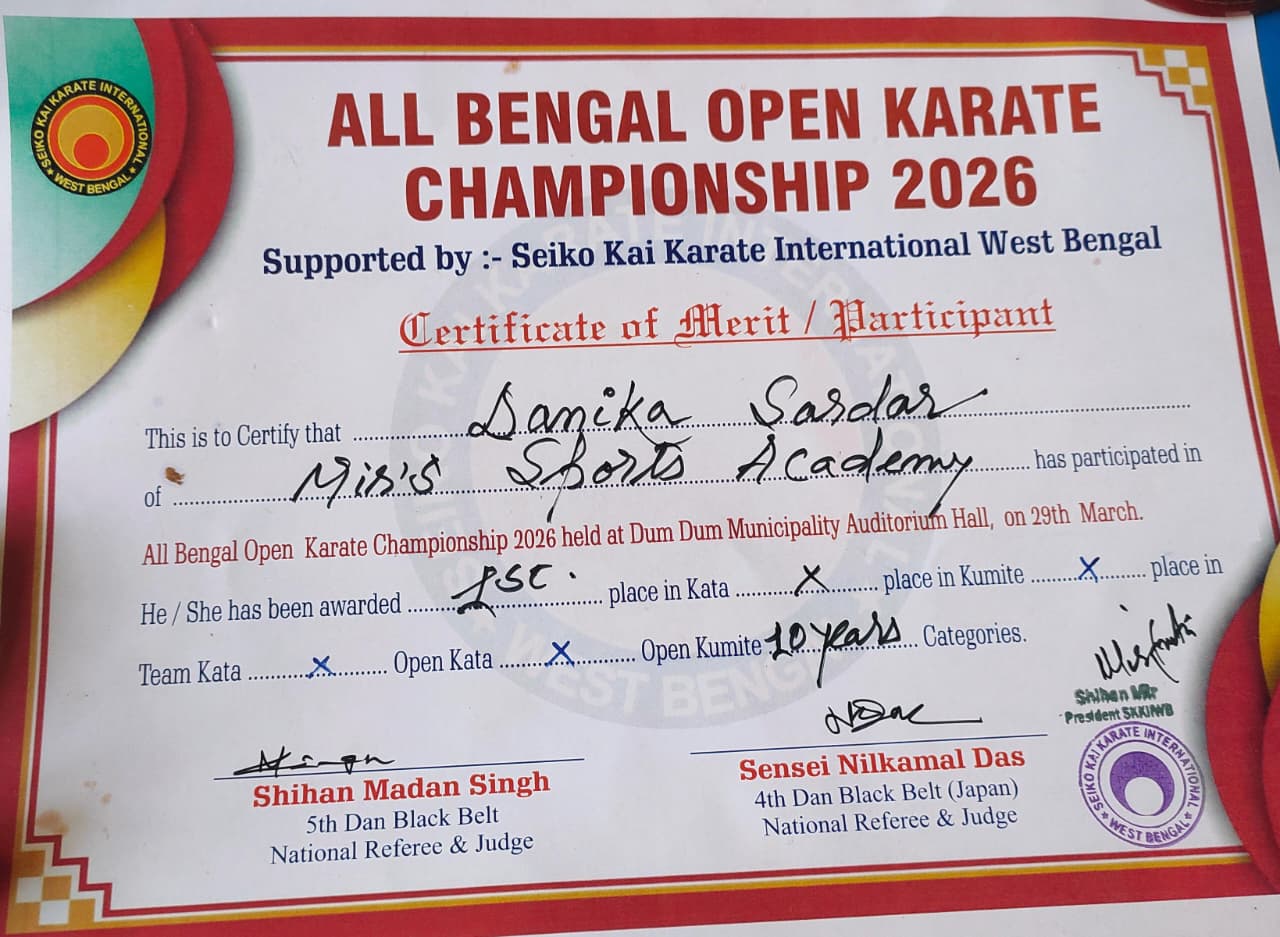 SEIKO KAI KARATE INTERNATIONAL
★ WEST BENGAL ★
ALL BENGAL OPEN KARATE
CHAMPIONSHIP 2026
Supported by :- Seiko Kai Karate International West Bengal
Certificate of Merit / Participant
This is to Certify that Danika Sardar
of Mir's Sports Academy has participated in
All Bengal Open Karate Championship 2026 held at Dum Dum Municipality Auditorium Hall, on 29th March.
He / She has been awarded 1st. place in Kata X place in Kumite X place in
Team Kata X Open Kata X Open Kumite 10 years Categories.
Shihan Mir
President SKKIWB
SEIKO KAI KARATE INTERNATIONAL
★ WEST BENGAL ★
Shihan Madan Singh
5th Dan Black Belt
National Referee & Judge
Sensei Nilkamal Das
4th Dan Black Belt (Japan)
National Referee & Judge